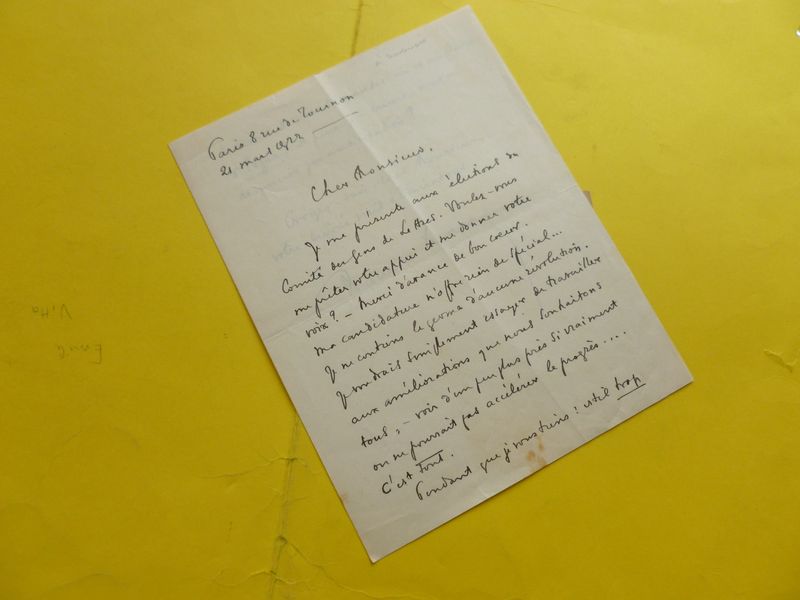 Paris 8 rue de Tournon
21 mars 1922
Cher Monsieur,
Je me présente aux élections du
Comité des Gens de Lettres. Voulez-vous
me prêter votre appui et me donner votre
voix ? — Merci d'avance de bon cœur.
Ma candidature n'offre rien de spécial...
Je ne contiens le germe d'aucune révolution.
Je voudrais simplement essayer de travailler
aux améliorations que nous souhaitons
tous, — voir d'un peu plus près si vraiment
on ne pourrait pas accélérer le progrès....
C'est tout.
Pendant que je vous tiens : est-il trop